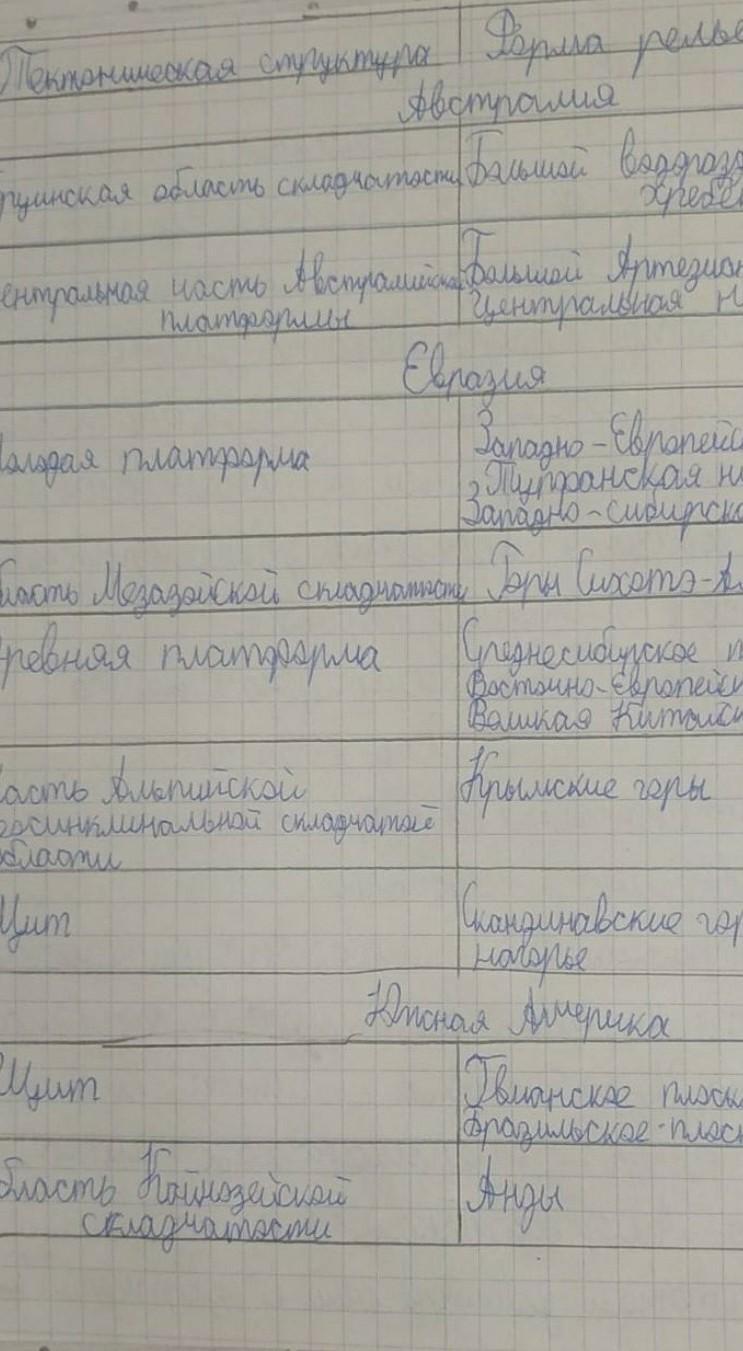 Тектоническая структура Форма релье
Австралия
рцинская область складчатости Большой Водораз
хребе
ентральная часть Австралийской Большой Артезиан
платформы Центральная н
Евразия
олодая платформа Западно-Европейс
Туранская н
Западно-сибирско
бласть Мезазойской складчатости Горы Сихотэ-Ал
ревняя платформа Среднесибирское п
Восточно-Европейск
Великая Китайск
асть Альпийской Крымские горы
еосинклинальной складчатой
области
Щит Скандинавские гор
нагорье
Южная Америка
Щит Гвианское плоск
Бразильское-плоск
бласть Кайнозейской Анды
складчатости